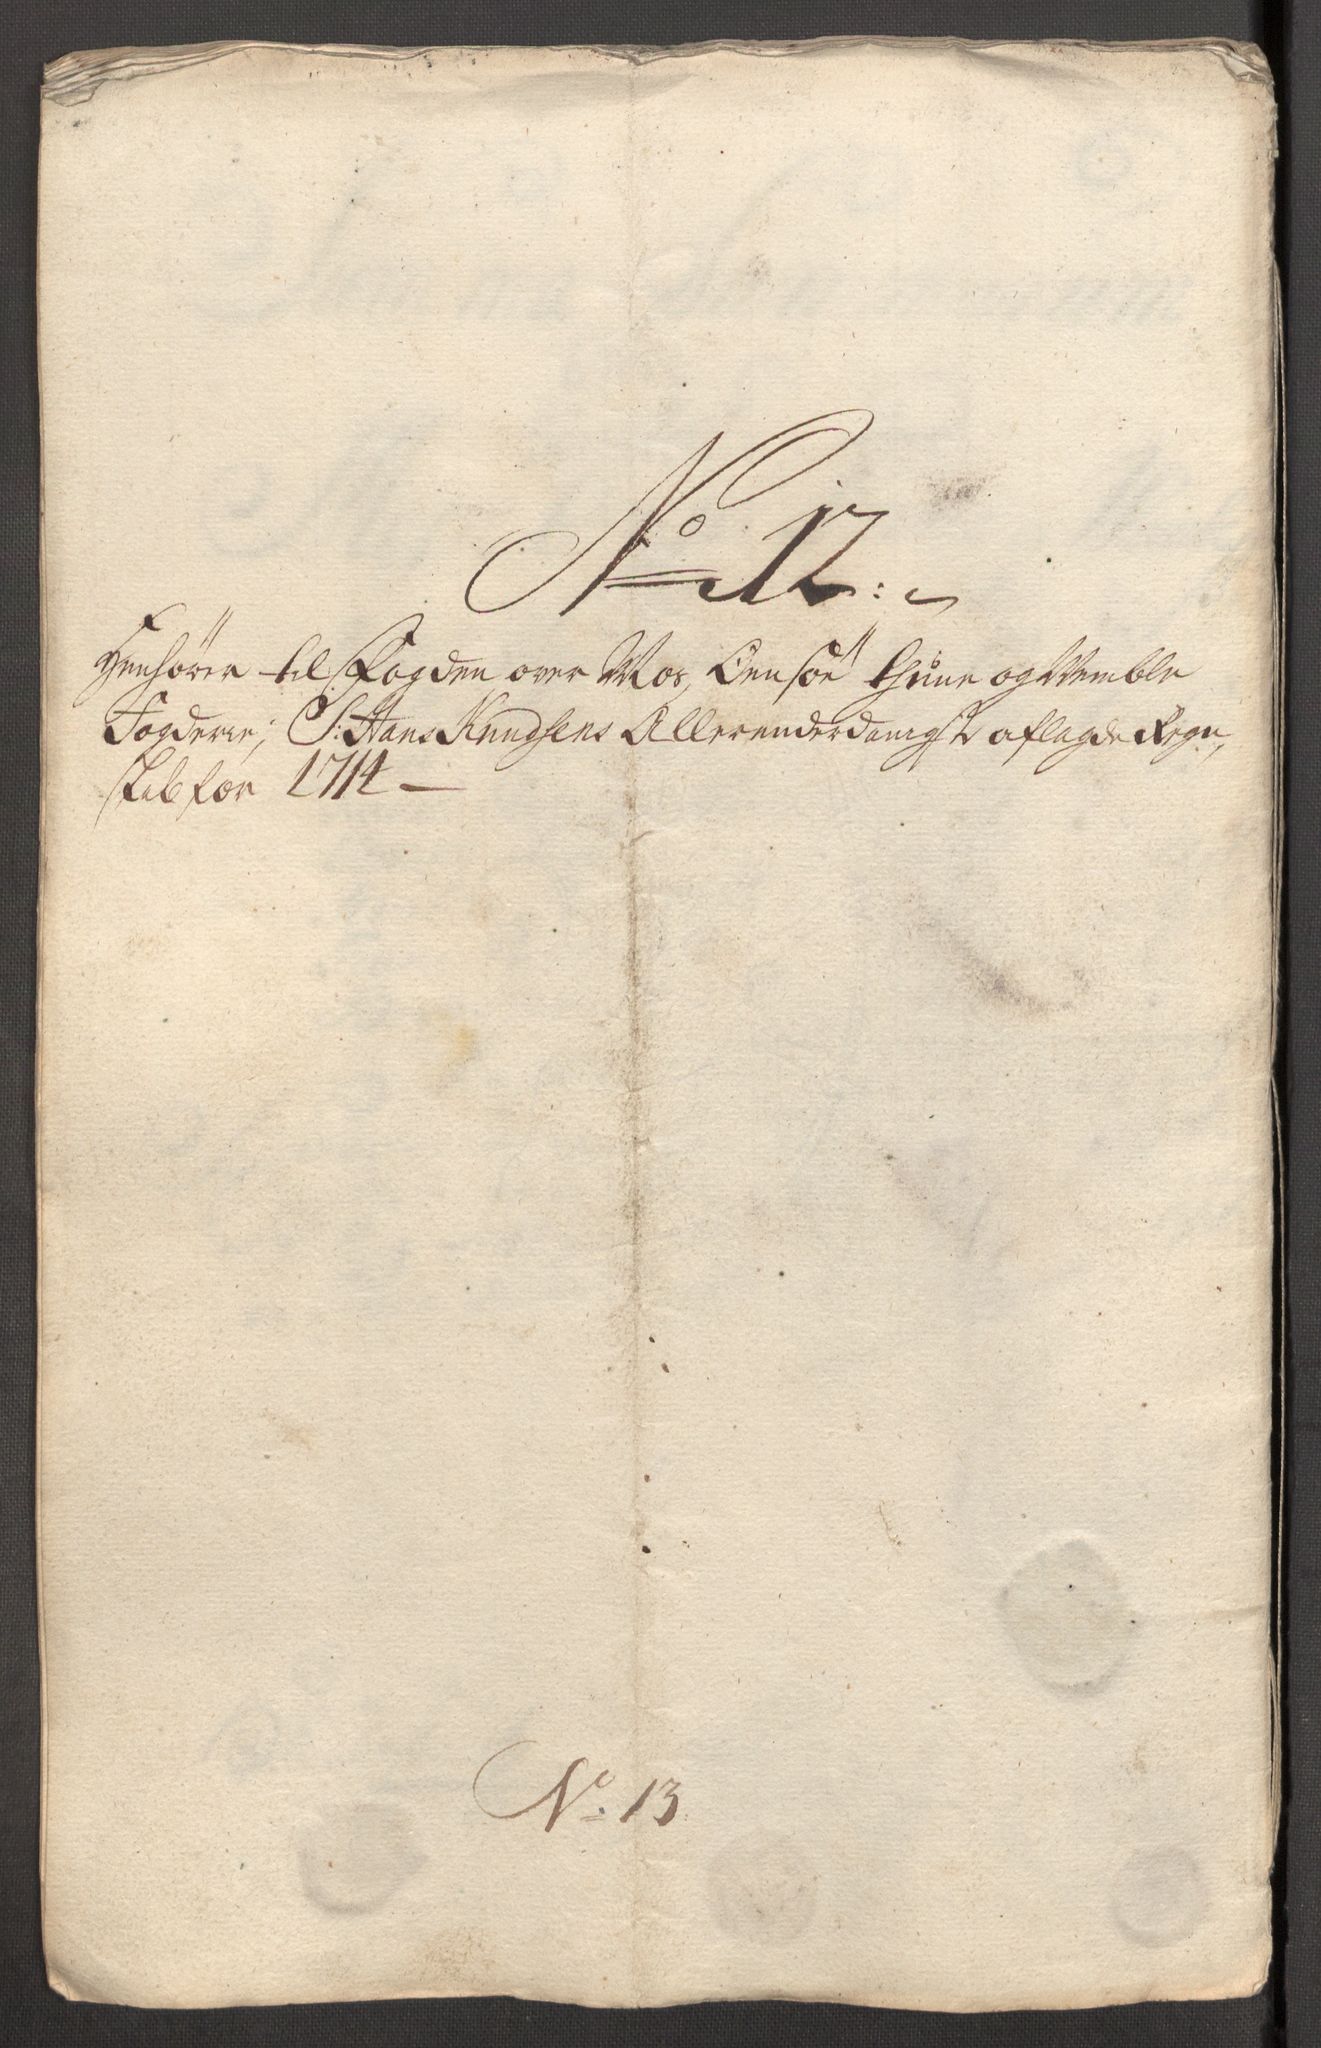 No 12:
Henhörer til Fogden over Mos, Oensöe Thune og Wemble
Fogderie; S: Hans Knudsens Allerunderdanigst aflagde Regn,
skab for 1714 —
No. 13